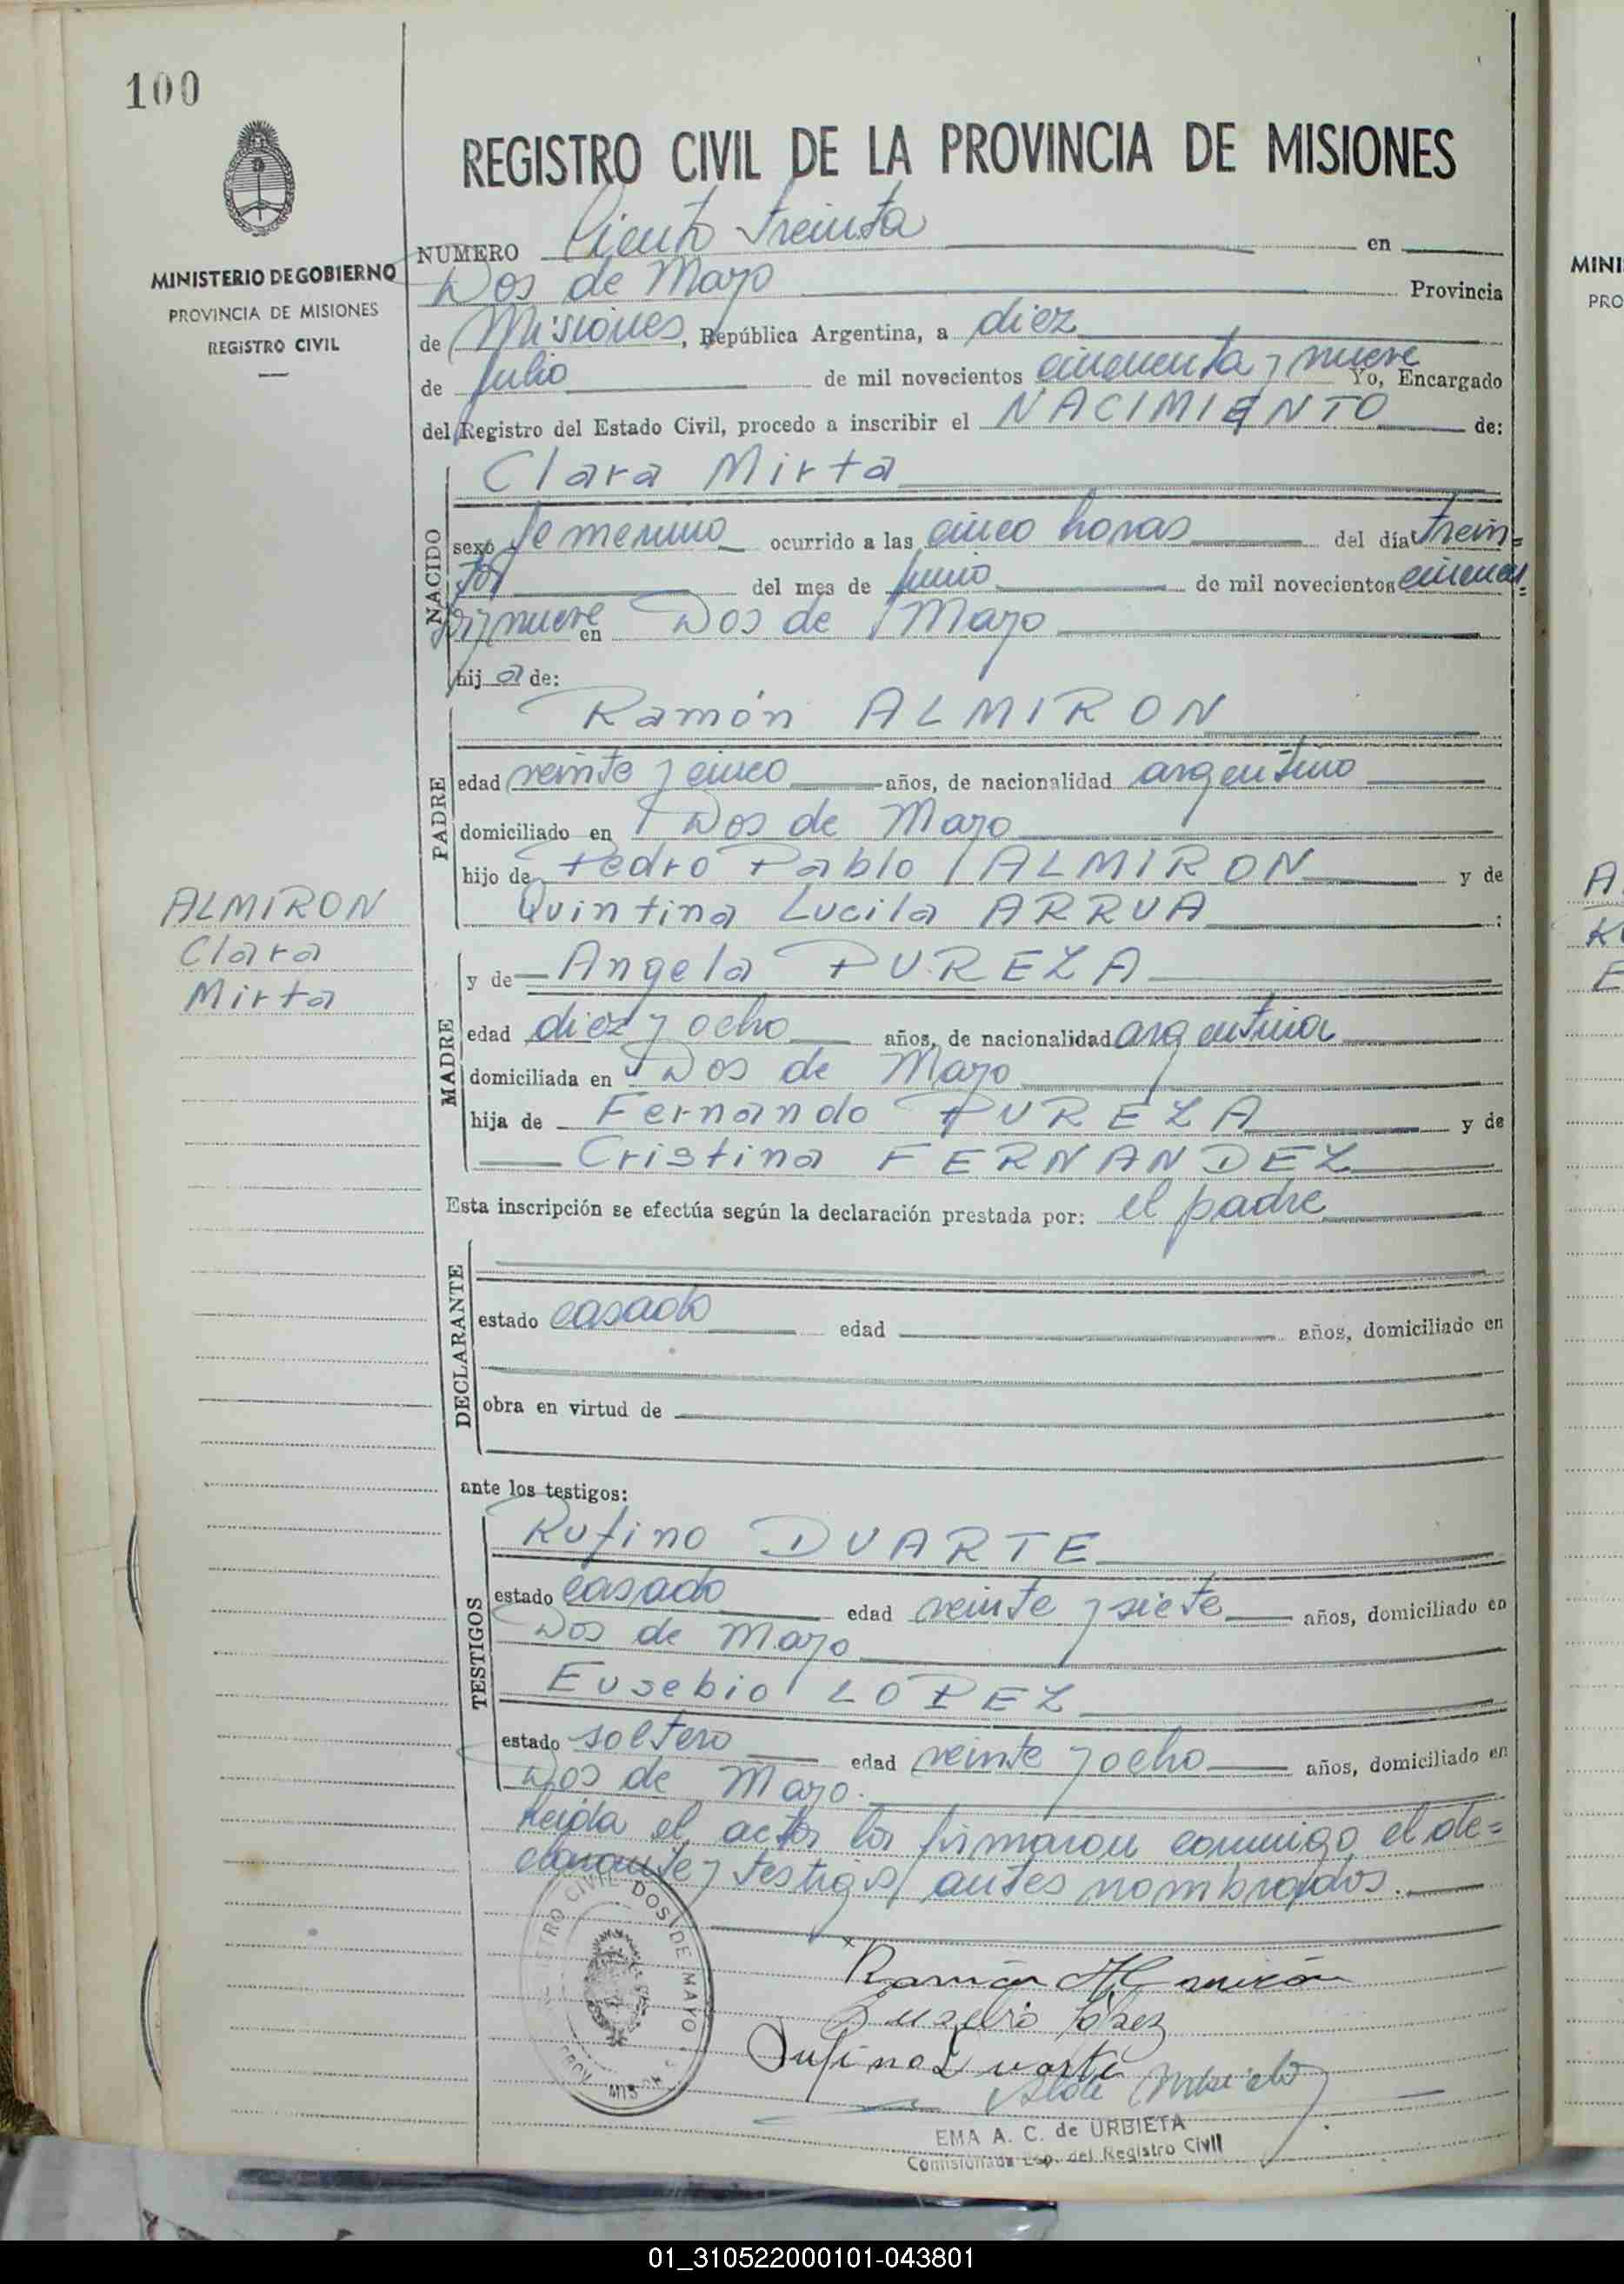 100
REGISTRO CIVIL DE LA PROVINCIA DE MISIONES
MINISTERIO DE GOBIERNO
PROVINCIA DE MISIONES
REGISTRO CIVIL
NUMERO Ciento treinta en
Dos de Mayo Provincia
de Misiones, República Argentina, a diez
de Julio de mil novecientos cincuenta y nueve Yo, Encargado
del Registro del Estado Civil, procedo a inscribir el NACIMIENTO de:
NACIDO
Clara Mirta
sexo femenino ocurrido a las cinco horas del día trein=
ta del mes de junio de mil novecientos cincuen=
ta y nueve en Dos de Mayo
hija de:
PADRE
Ramón ALMIRON
edad veinte y cinco años, de nacionalidad argentino
domiciliado en Dos de Mayo
hijo de Pedro Pablo ALMIRON y de
Quintina Lucila ARRUA :
ALMIRON
Clara
Mirta
MADRE
y de Angela PUREZA
edad diez y ocho años, de nacionalidad argentina
domiciliada en Dos de Mayo
hija de Fernando PUREZA y de
Cristina FERNANDEZ
Esta inscripción se efectúa según la declaración prestada por: el padre
DECLARANTE
estado casado edad años, domiciliado en
obra en virtud de
ante los testigos:
TESTIGOS
Rufino DUARTE
estado casado edad veinte y siete años, domiciliado en
Dos de Mayo
Eusebio LOPEZ
estado soltero edad veinte y ocho años, domiciliado en
Dos de Mayo.
Leida el acta la firmaron conmigo el de=
clarante y testigos antes nombrados.
REGISTRO CIVIL DOS DE MAYO
PROV. MIS.
Ramón Almirón
Eusebio López
Rufino Duarte
EMA A. C. de URBIETA
Comisionada Esp. del Registro Civil
MINI
PRO
A
K
E
01_310522000101-043801